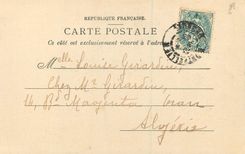 RÉPUBLIQUE FRANÇAISE
CARTE POSTALE
Ce côté est exclusivement réservé à l'adresse
Melle Louise Girardin,
Chez Mr Girardin,
14, Bd Magenta Oran
Algérie